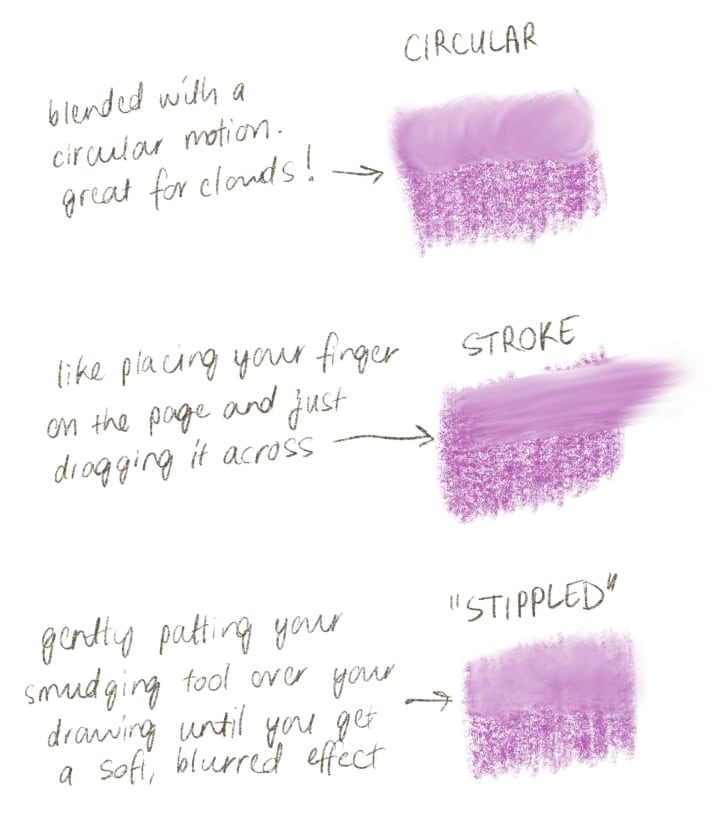 CIRCULAR
blended with a
circular motion.
great for clouds!
STROKE
like placing your finger
on the page and just
dragging it across
"STIPPLED"
gently patting your
smudging tool over your
drawing until you get
a soft, blurred effect